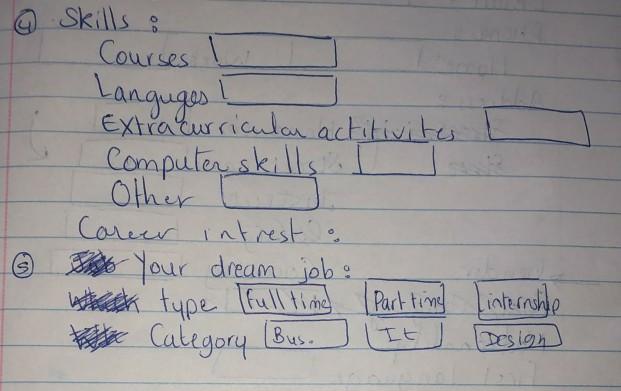 ④ Skills :
Courses
Languges
Extracurricular actitivites
Computer skills
Other
Career intrest :
⑤ Your dream job :
type Full time Part time internship
Category Bus. It Design